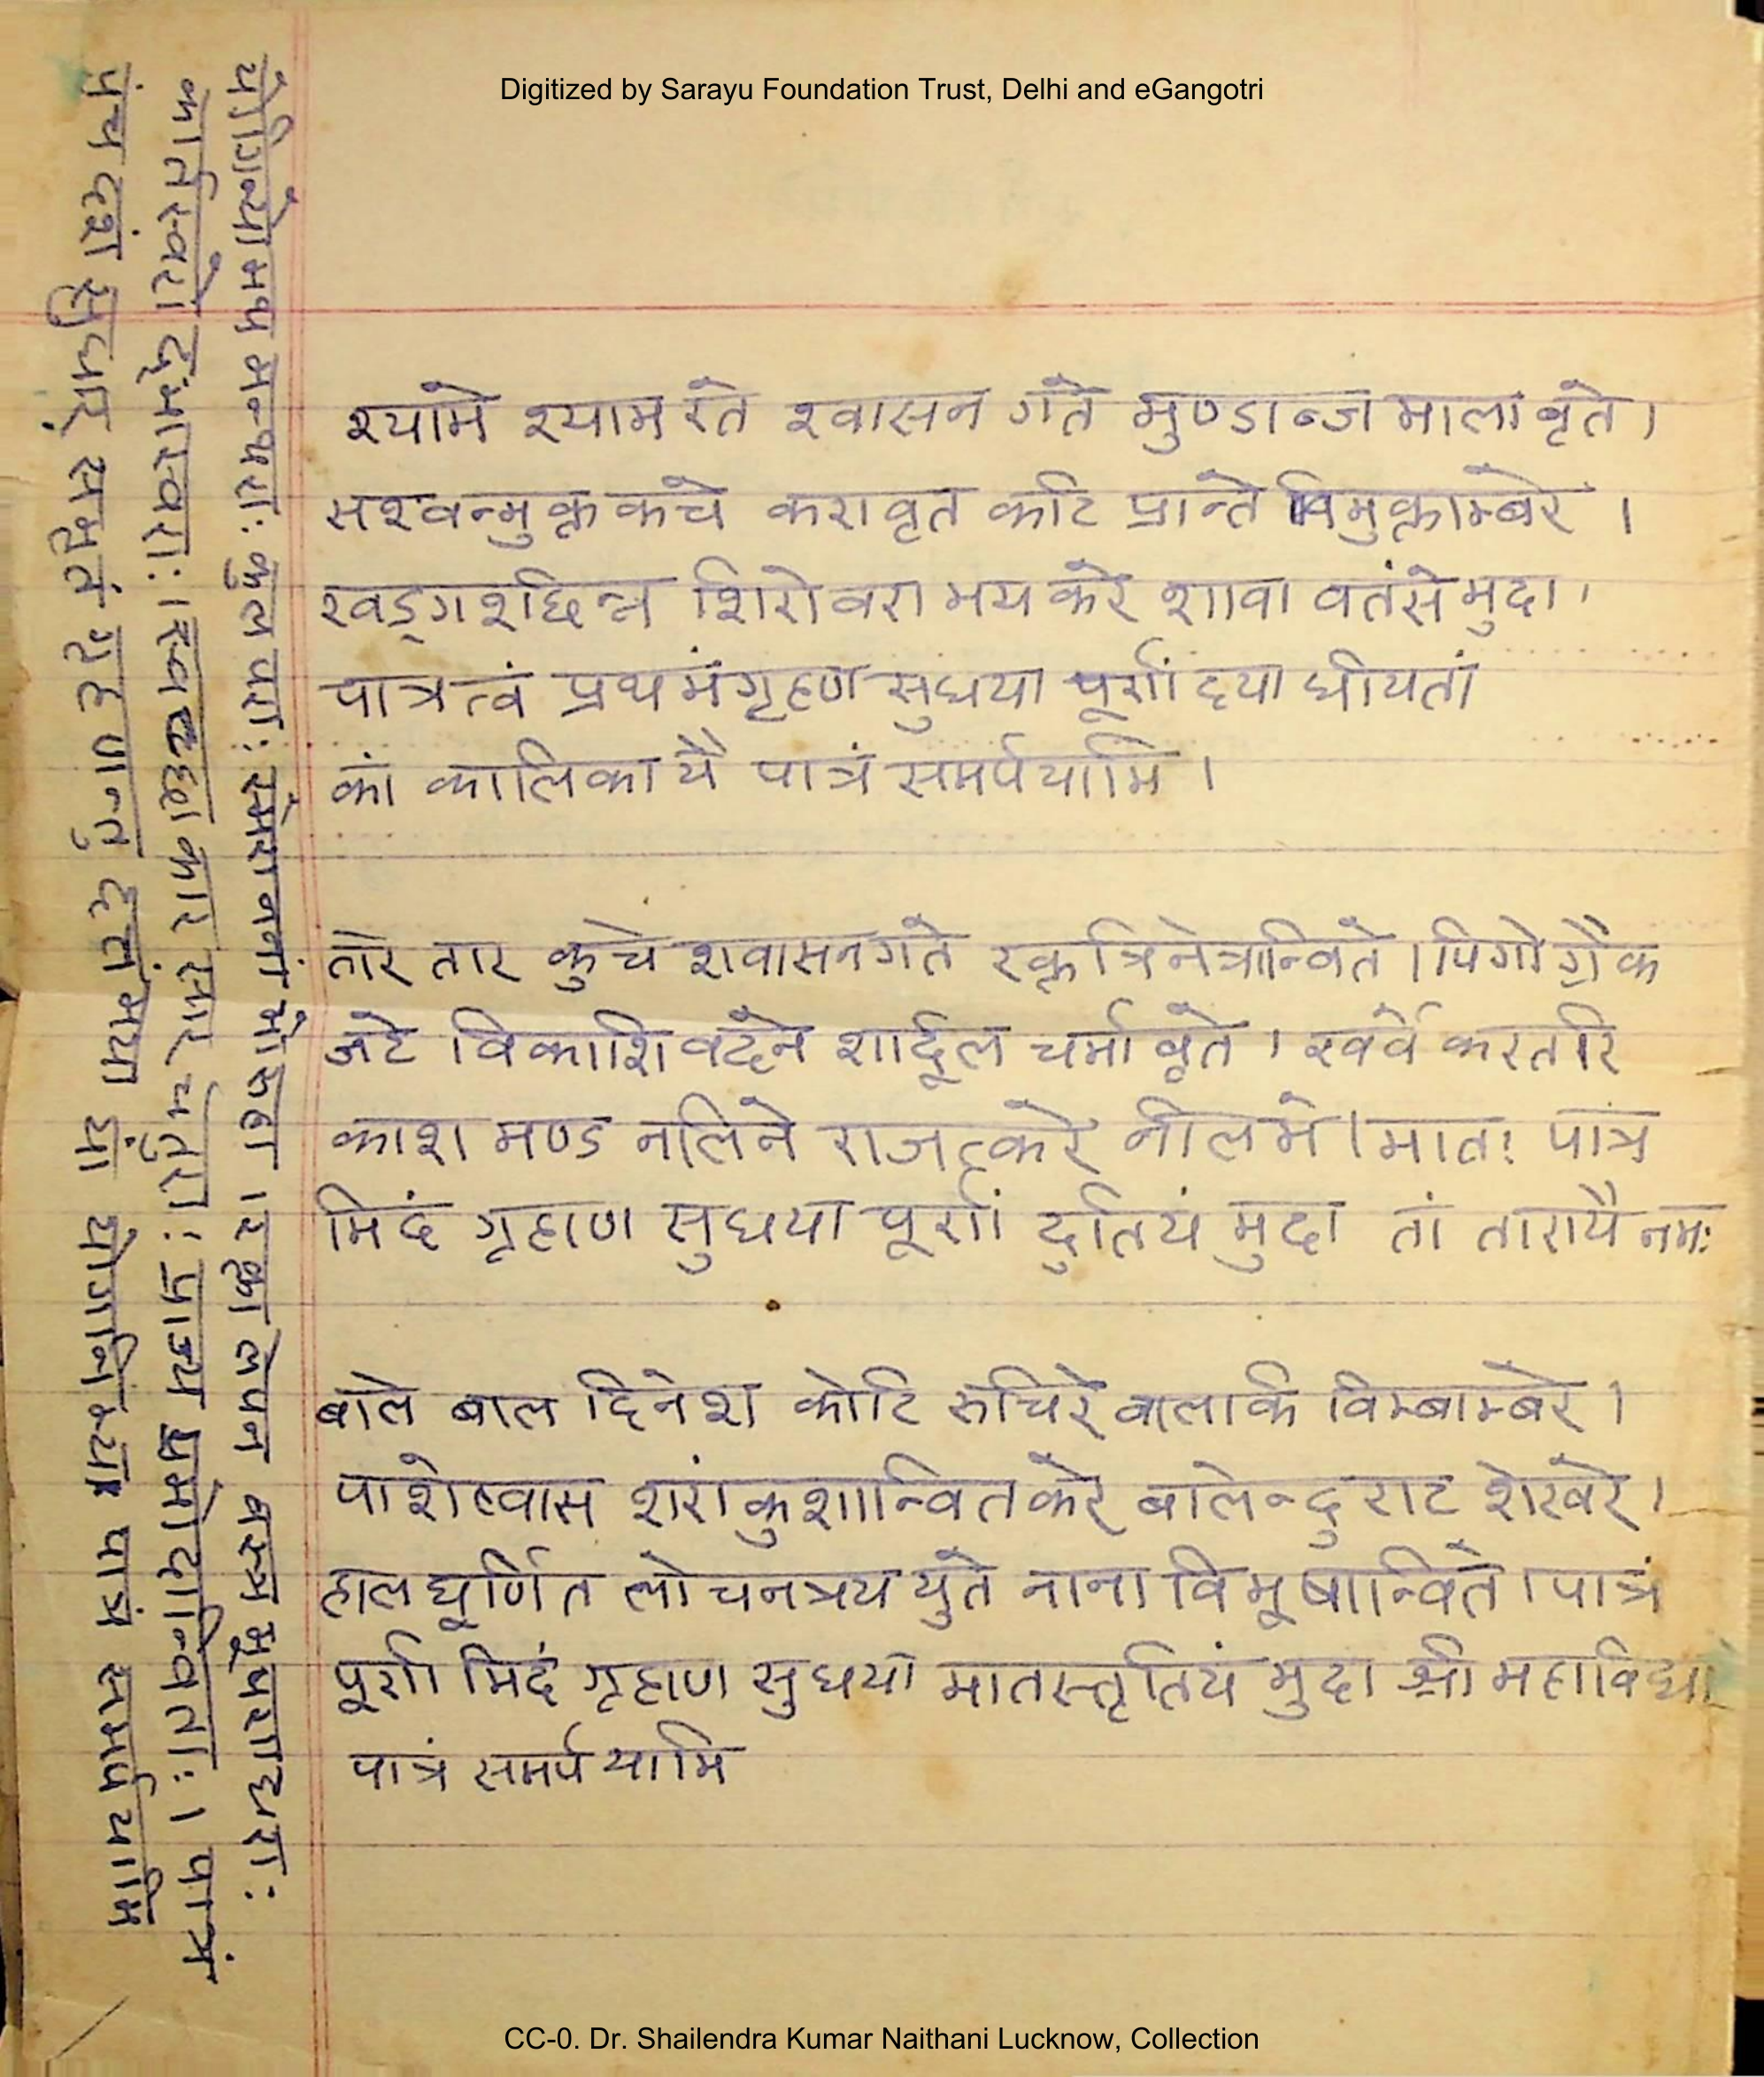 Digitized by Sarayu Foundation Trust, Delhi and eGangotri
श्यामे श्याम रते श्वासन गते मुण्डाब्ज माला वृते।
सश्वन्मुक्त कचे करावृत कटि प्रान्ते विमुक्ताम्बरे ।
खड्ग शछिन्न शिरो वरा भय करे शावा वतंसे मुदा।
पात्रत्वं प्रथमं गृहाण सुधया पूर्णां दया धीयतां
कां कालिकायै पात्रं समर्पयामि ।
तारे तार कुचे शवासनगते रक्त त्रिनेत्रान्विते । पिगोग्रैक
जटे विकाशिवदने शार्दूल चर्मा वृते। खर्वे करतरि
काश मण्ड नलिने राजत्करे नीलमे। मातः पात्र
मिदं गृहाण सुधया पूर्णां दुतियं मुदा तां तारायै नमः
बाले बाल दिनेश कोटि रुचिरे वालार्क विम्बाम्बरे ।
पाशेस्वास शरांकुशान्वितकरे बालेन्दु राट शेखरे।
हाल घूर्णित लोचनत्रय युते नाना विभूषान्विते। पात्रं
पूर्ण मिदं गृहाण सुधया मातस्तृतियं मुदा श्री महाविद्या
पात्रं समर्पयामि
कुल परा: रक्ता लेपन वस्त्र भूषणधरा:
पात्रं
पंच दशं सुधार् सभृतं गृहणन्तु दत्तं मया यां योगनिभ्यः पात्रं समर्पयामि
CC-0. Dr. Shailendra Kumar Naithani Lucknow, Collection